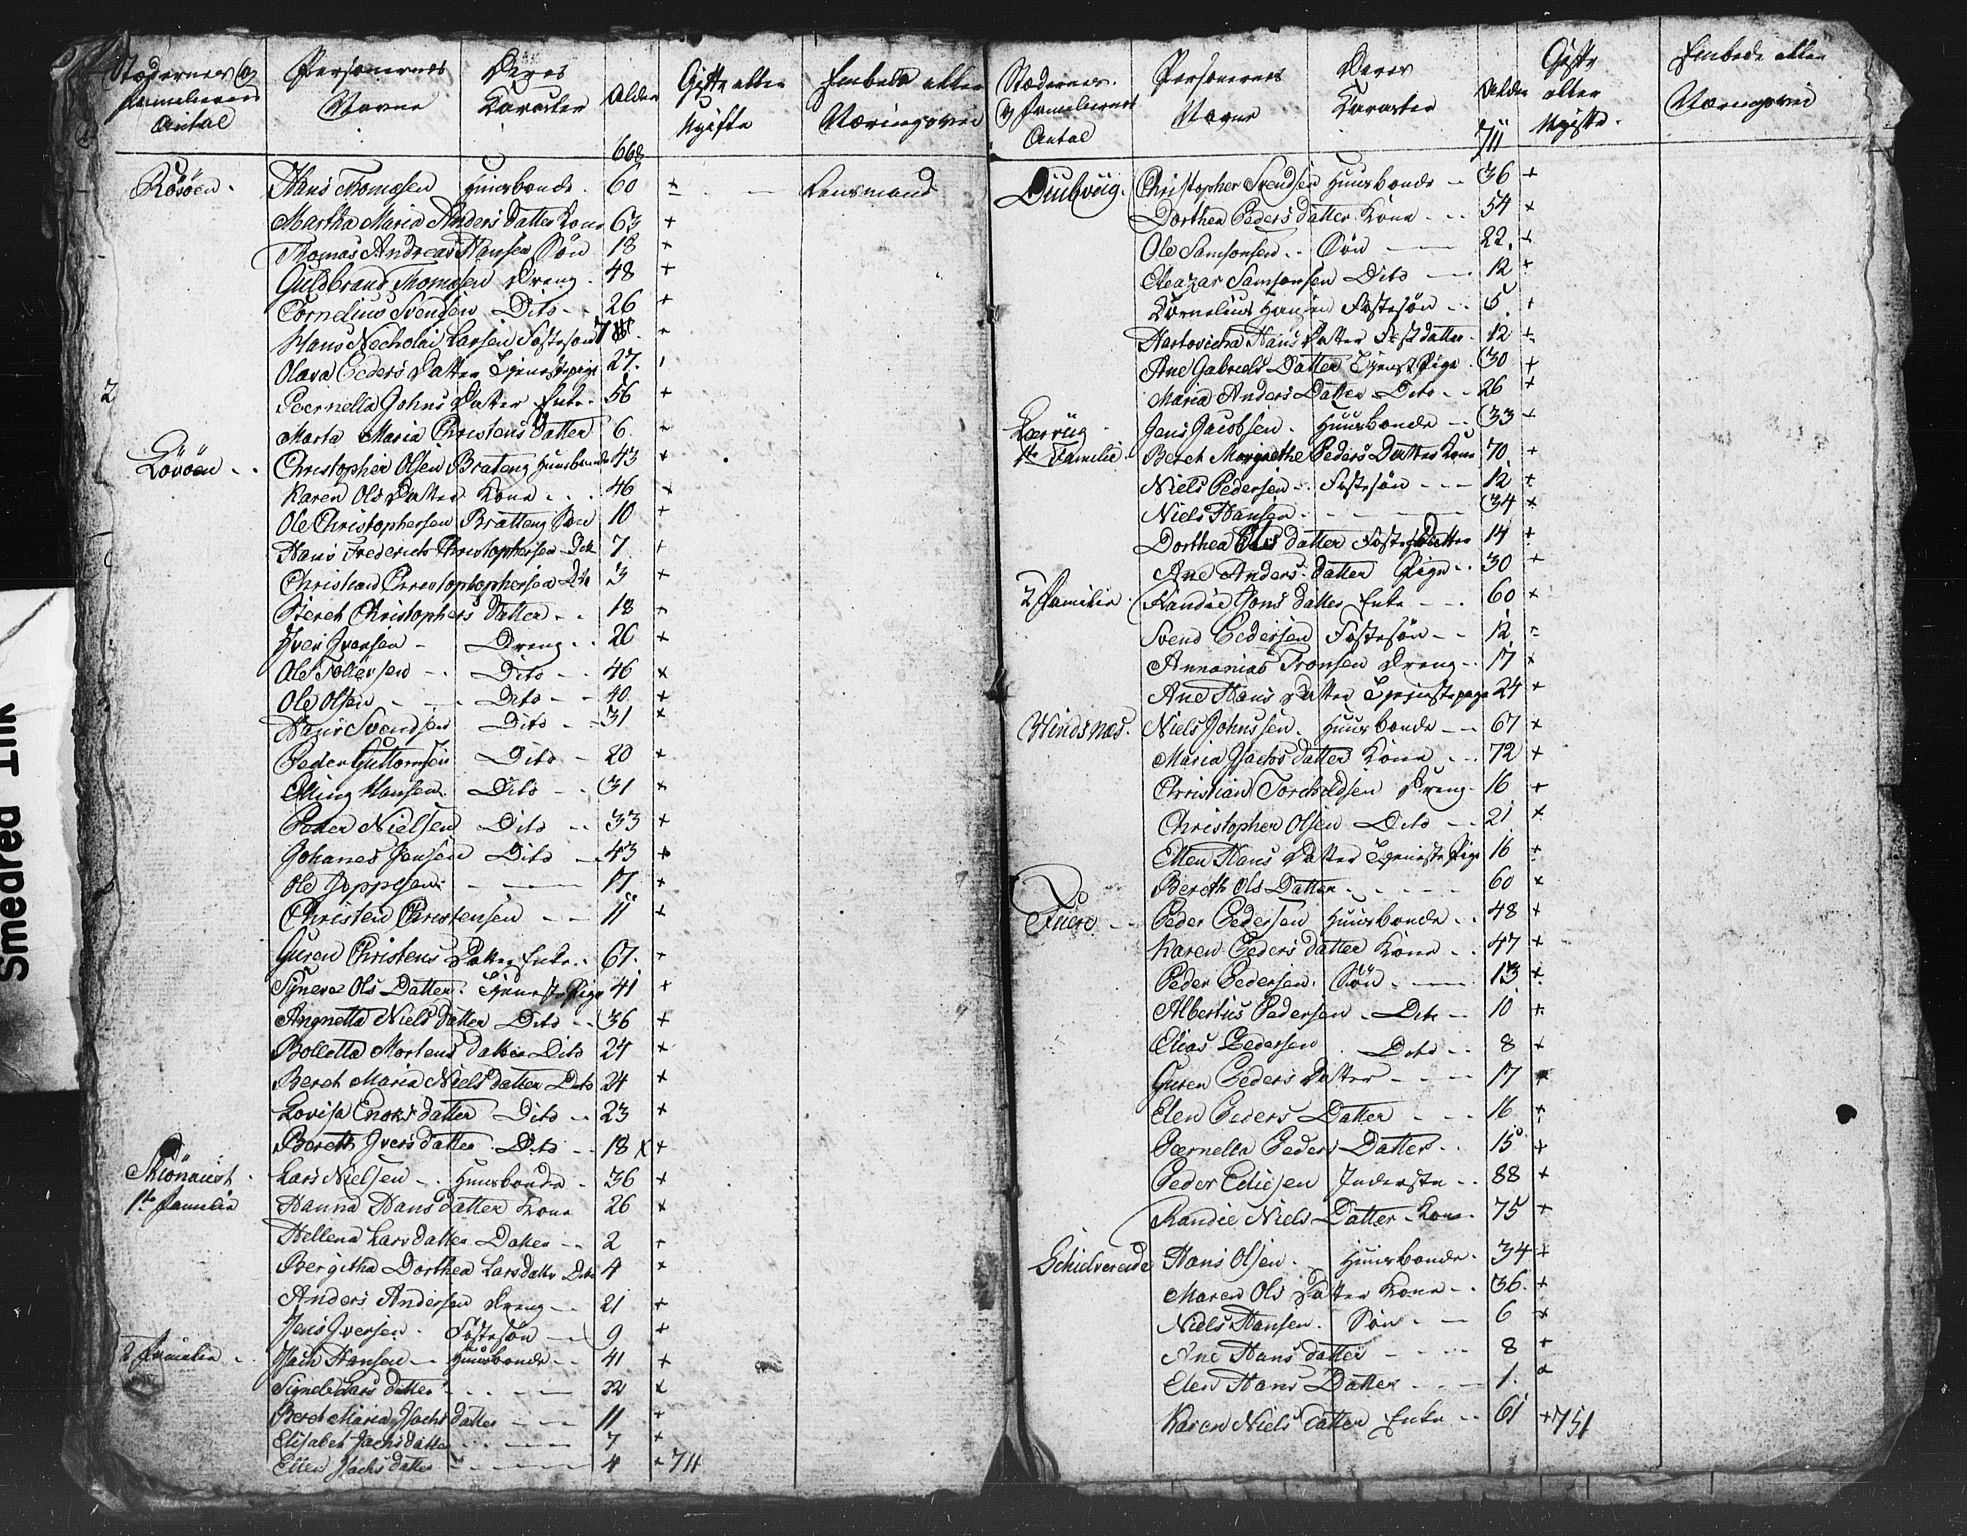 Stædernes og Familiernes Antal | Personernes Navne | Deres Karacter | Alder | Gifte eller Ugifte | Embede eller Næringsvei
668
Rosöen. Hans Thomesen Huusbonde. 60 + Lensmand
Martha Maria Anders Datter Kone 63 +
Thomas Andreas Hansen Sön 18 +
Guldbrand Thomesen Dreng. 48 +
Cornelius Svendsen Dito 26 +
Hans Nicholai Larsen Fostesön 7
Olava Peders Datter Tjenestepige 27.
2
Peernella Johns Datter Enke. 56 +
Marta Maria Christens Datter 6.
Lövöen Christopher Olsen Brateng Huusbonde 43 +
Karen Ols Datter Kone 46 +
Ole Christophersen Bratteng Sön 10 +
Hans Frederich Christophersen Dito 7 +
Christian Christophophersen Dito 3 +
Bereth Christophers Datter 18 +
Iver Iversen Dreng 26 +
Ole Tollefsen Dito 46 +
Ole Olsen Dito 40. +
Hans Svendsen Dito 31 +
Peder Guttormsen Dito 20 +
Elling Hansen. Dito 31 +
Peder Nielsen Dito 33 +
Johanes Jensen Dito 43 +
Ole Joppesen 17 +
Christen Christensen 11 +
Guren Christens Datter Enke 67. +
Syneva Ols Datter. Tjeneste Pige 41 +
Angnetta Niels Datter Dito 36 +
Bolletta Mortens Datter Dito 24 +
Beret Maria Niels Datter Dito 24 +
Lovisa Enoks datter Dito 23 +
Bereth Ivers datter Dito 18 x +
1te Familie Lars Nielsen Huusbonde 36 +
Hanna Hans datter Kone 26 +
Hellena Lars datter Datter 2 +
Bergitha Dorthea Larsdatter Dito 4 +
Anders Andersen Dreng 21 +
Jens Iversen. Fostesön 9 +
2 Familie Isach Hansen Huusbonde 41 +
Signe Lars datter 22 +
Beret Maria Isachs datter 11 +
Elisabet Isachs datter 7 +
Ellen Isachs datter 4 + 711
Stædernes og Familiernes Antal | Personernes Navne | Deres Karacter | Alder | Gifte eller Ugifte. | Embede eller Næringsvei
711
Diubviig. Christopher Svendsen Huusbonde 36 +
Dorthea Peders datter. Kone 54 +
Ole Samsonsen Sön 22. +
Eleazar Samsonsen Dito 12 +
Kornelius Hansen Fostesön 5. +
Hartvicha Hans Datter Fostdatter. 12 +
Ane Gabriels Datter Tjenest Pige 30 +
Maria Anders Datter Dito 26 +
Leerviig Jens Jacobsen. Huusbonde 33 +
1te Familie. Beret Margrethe Peders Datter Kone 70 +
Niels Pedersen Fostesön 12 +
Niels Hansen 34 +
Dorthea Ols datter Foste Datter 14 +
Ane Anders datter Pige 30 +
2 Familie. Randie Jons datter Enke 60 +
Svend Pedersen Fostesön 12
Annanias Tronsen Dreng 17 +
Ane Hans Datter Tjenestepige 24 +
Windsnæs. Niels Johnssen. Huusbonde 67 +
Maria Isachs datter Kone 72 +
Christian Torchildsen Dreng 16 +
Christopher Olsen Dito 21 +
Ellen Hans Datter Tjeneste Pige 16 +
Bereth Ols Datter. 60 +
Fuere Peder Pedersen Huusbonde 48 +
Karen Peders datter Kone 47 +
Peder Pedersen. Sön 13. +
Albertus Pedersen Dito 10 +
Elias Pedersen Dito 8 +
Guren Peders Datter 17 +
Elen Peders Datter 16 +
Peernella Peders Datter 15 +
Peder Ediesen Inderste 88 +
Randie Niels Datter Kone 75 +
Schielvereide Hans Olsen. Huusbonde. 34 +
Maren Ols Datter Kone 36. +
Niels Hansen. Sön 6 +
Ane Hans datter 8 +
Elen Hans Datter 1.
Karen Niels datter Enke 61 + 751
Smedred Ink